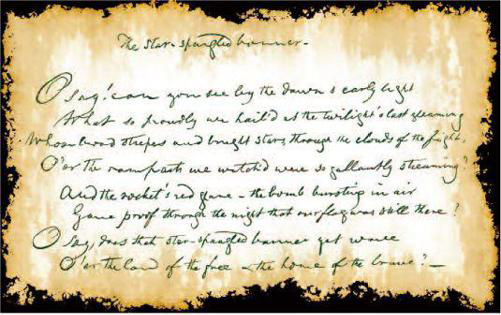 The star-spangled banner -
O say! can you see by the dawn's early light
What so proudly we hail'd at the twilight's last gleaming
Whose broad stripes and bright stars through the clouds of the fight,
O'er the ramparts we watch'd were so gallantly streaming?
And the rocket's red glare - the bomb bursting in air
Gave proof through the night that our flag was still there?
O say, does that star-spangled banner yet wave
O'er the land of the free & the home of the brave? —